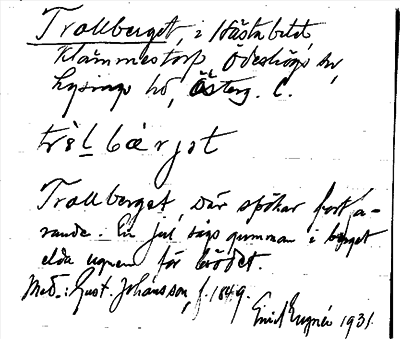 Trollberget, i Hästabild,
Klämmestorp, Ödeshögs sn,
Lysings hd, Österg. C.
trə̀lbærjət
Trollberget, där spökar fortfa-
rande. En jul sågs gumman i berget
elda ugnen för brödet.
Med.: Gust. Johansson, f. 1849.
1931.